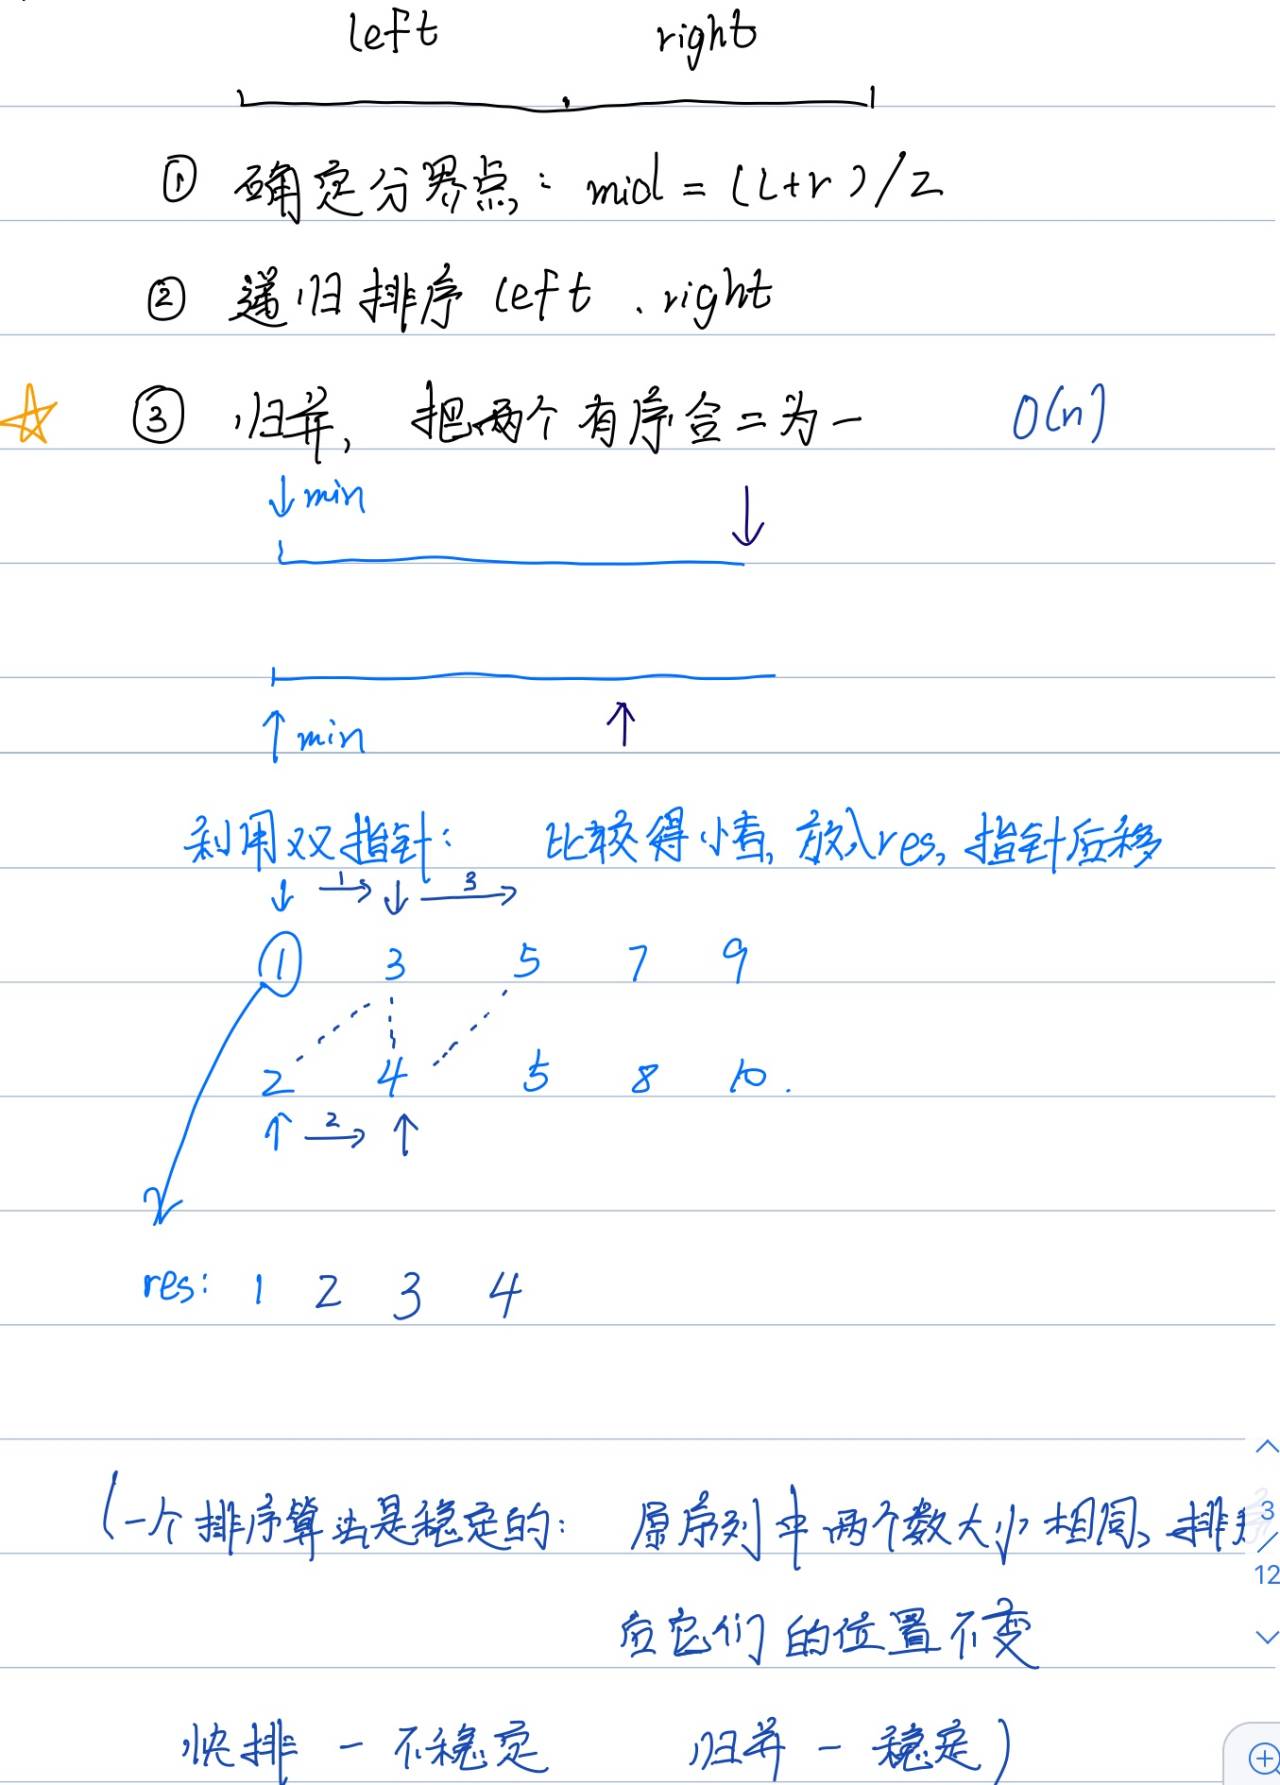 left right
① 确定分界点: mid = (L+r)/2
② 递归排序 left . right
③ 归并, 把两个有序合二为一 O(n)
↓ min ↓
↑ min ↑
利用双指针: 比较得小者, 放入res, 指针后移
↓ 1→ ↓ 3→
① 3 5 7 9
2 4 5 8 10.
↑ 2→ ↑
res: 1 2 3 4
(一个排序算法是稳定的: 原序列中两个数大小相同, 排
3
/
12
后它们的位置不变
快排 - 不稳定 归并 - 稳定)